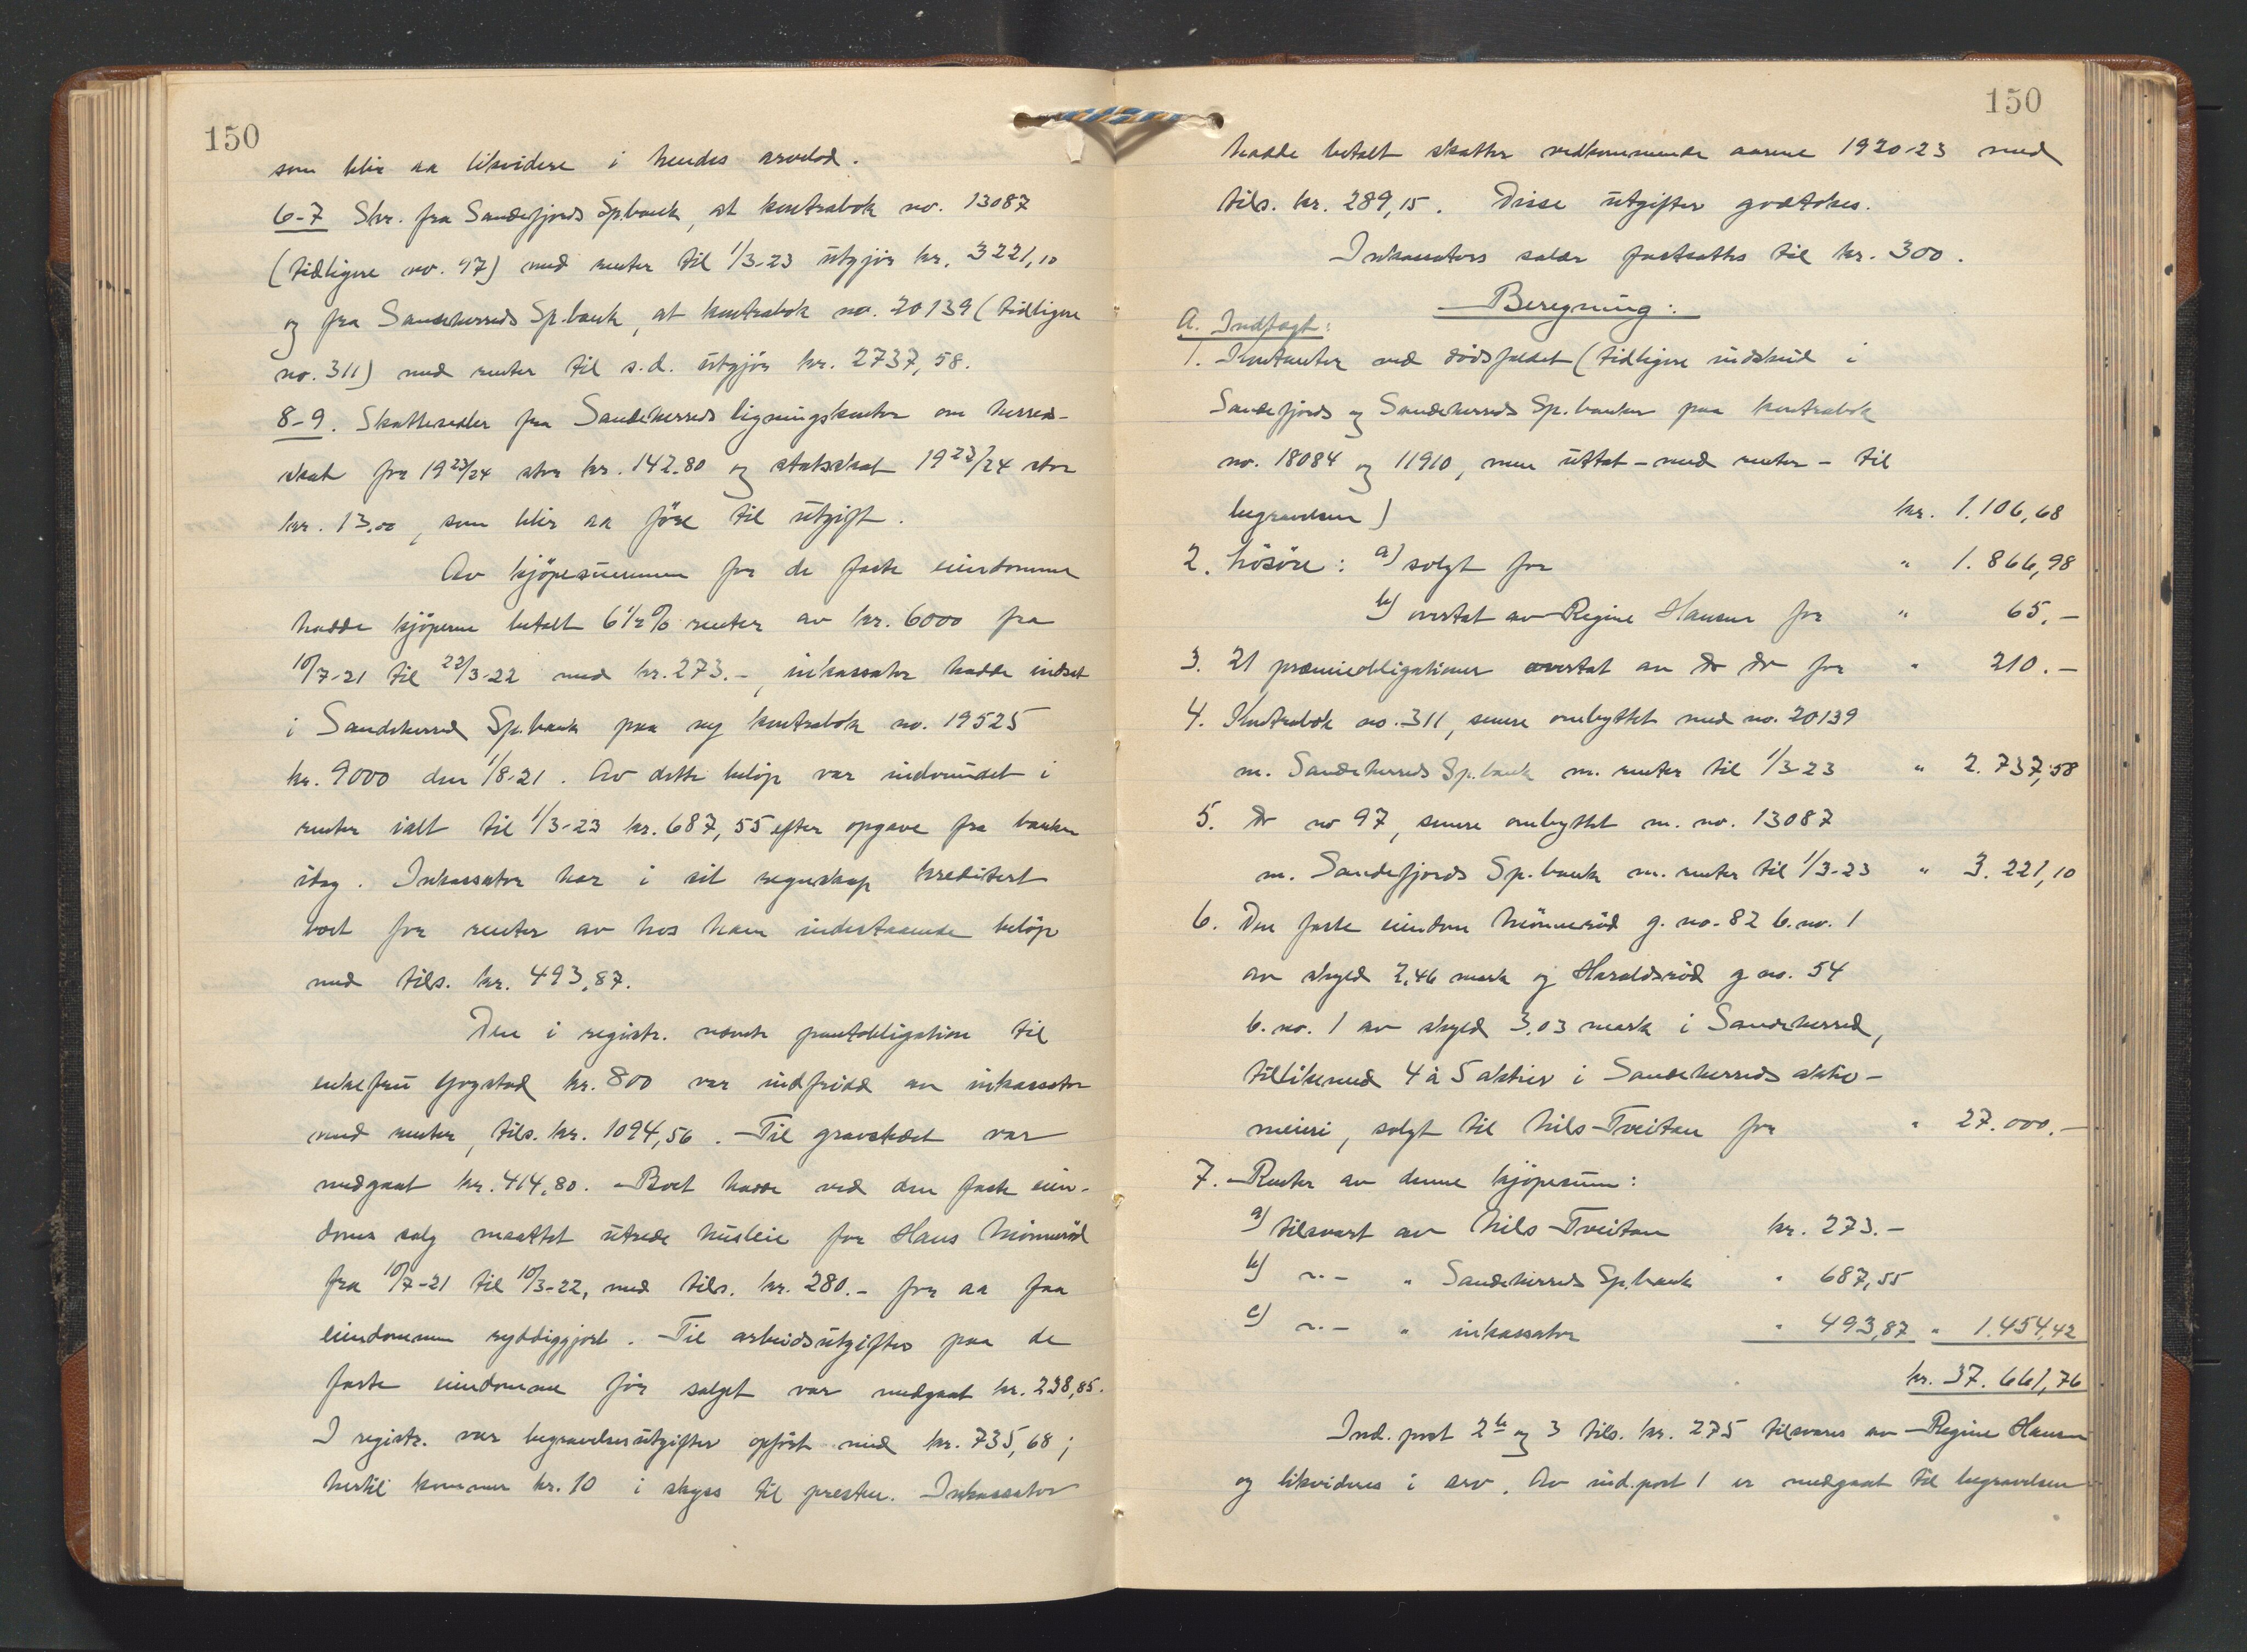 150
som blir aa likvidere i hendes arvelod.
6-7 Skr. fra Sandefjords Sp.bank, at kontrabok no. 13087
(tidligere no. 97) med renter til 1/3-23 utgjør kr. 3221,10
og fra Sandeherreds Sp.bank, at kontrabok no. 20139 (tidligere
no. 311) med renter til s.d. utgjør kr. 2737,58.
8-9. Skattesedler fra Sandeherreds ligningskontor om herred-
skat for 1923/24 stor kr. 142.80 og statsskat 1923/24 stor
kr. 13.00, som blir aa føre til utgift.
Av kjøpesummen for de faste eiendomme
hadde kjøperne betalt 6 1/2 % renter av kr. 6000 fra
10/7-21 til 22/3-22 med kr. 273.-, inkassator hadde indsat
i Sandeherred Sp.bank paa ny kontrabok no. 19525
kr. 9000 den 1/8-21. Av dette beløp var indvundet i
renter ialt til 1/3-23 kr. 687,55 efter opgave fra banken
idag. Inkassator har i sit regnskap kreditert
boet for renter av hos ham indestaaende beløp
med tils. kr. 493,87.
Den i registr. nævnte pantobligation til
enkefru Gogstad kr. 800 var indfridd av inkassator
med renter, tils. kr. 1094,56. - Til gravstedet var
medgaat kr. 414,80. - Boet hadde ved den faste eien-
doms salg maattet utrede husleie for Hans Mönneröd
fra 10/7-21 til 10/3-22, med tils. kr. 280.- for aa faa
eiendommen ryddiggjort. - Til arbeidsutgifter paa de
faste eiendomme før salget var medgaat kr. 238,85.
I registr. var begravelsesutgifter opført med kr. 735,68;
hertil kommer kr. 10 i skyss til presten. Inkassator
150
hadde betalt skatter vedkommende aarene 1920-23 med
tils. kr. 289,15. Disse utgifter godtokes.
Inkassators salær fastsattes til kr. 300.
Beregning:
A. Indtægt:
1. Kontanter ved dødsfaldet (tidligere indskud i
Sandefjords og Sandeherreds Sp.banker paa kontrabok
no. 18084 og 11910, men uttat - med renter - til
begravelsen) kr. 1.106,68
2. Løsøre: a) solgt for " 1.866,98
b) overtat av Regine Hansen for " 65.-
3. 21 præmieobligationer overtat av do do for " 210.-
4. Kontrabok no. 311, senere ombyttet med no. 20139
m. Sandeherreds Sp.bank m. renter til 1/3-23 " 2.737,58
5. do no 97, senere ombyttet m. no. 13087
m. Sandefjords Sp.bank m. renter til 1/3-23 " 3.221,10
6. Den faste eiendom Mönneröd g.no. 82 b.no. 1
av skyld 2,46 mark og Haraldsröd g no. 54
b.no. 1 av skyld 3.03 mark i Sandeherred,
tillikemed 4 à 5 aktier i Sandeherreds aktie-
meieri, solgt til Nils Tveitan for " 27.000.-
7. Renter av denne kjøpesum:
a) tilsvart av Nils Tveitan kr. 273.-
b) -"- " Sandeherreds Sp.bank " 687,55
c) -"- " inkassator " 493,87 " 1.454,42
kr. 37.661,76
Ind. post 2b og 3 tils. kr. 275 tilsvares av Regine Hansen
og likvideres i arv. Av ind.post 1 er medgaat til begravelsen